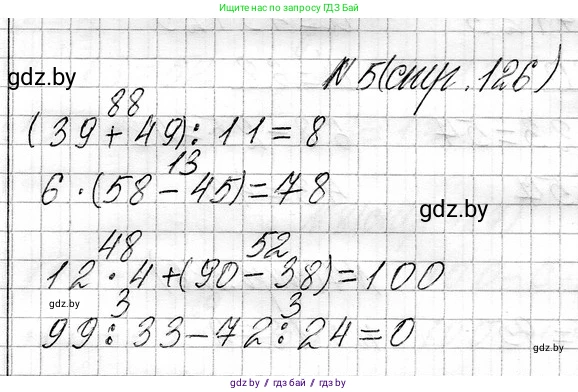 Ищите нас по запросу ГДЗ Бай
gdz.by
№ 5(стр. 126)
88
(39 + 49) : 11 = 8
13
6 · (58 − 45) = 78
gdz.by
48 52
12 · 4 + (90 − 38) = 100
gdz.by
3 3
99 : 33 − 72 : 24 = 0
gdz.by / гдз.бай / gdz.by / гдз.бай / gdz.by